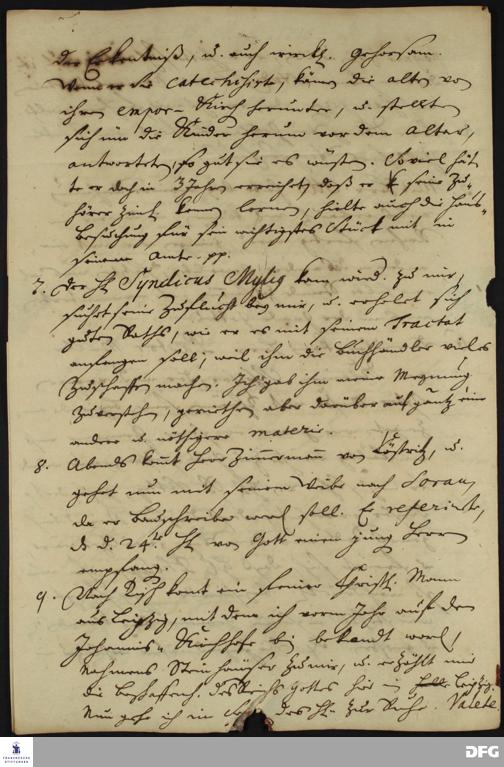 der Erkentniß, u. auch wirckl. Gehorsam.
Wenn er sie catechisirt, kämen die alten von
ihren empor-Kirch herunter, u. stellten
sich um die Kinder herum vor dem Altar,
antworteten, so gut sie es wüsten. Soviel hät-
te er doch in 3 Jahren erreichet, daß er seine Zu-
hörer ziml. kennen lernen, hielte auch die Haus-
besuchung für sein wichtigstes Stück mit in
seinem Amte. pp.
7. Der H. Syndicus Mylig kam wied. zu mir,
suchet seine Zuflucht bey mir, u. erholet sich
guten Raths, wie er es mit seinem Tractat
anfangen soll; weil ihm die Buchhändler vieles
Zuschaffen machen. Ich gab ihm meine Meynung
zuverstehen, geriethen aber darüber auf gantz eine
andere u. nöthigere materie.
8. Abends komt Herr Zimmermann von Köstritz, u.
gehet nun mit seinem Weibe nach Sorau,
da er Bauschreiber werd. soll. Er referirte,
d. d. 24. H. von Gott einen jung Herrn
empfang.
9. Nach Tisch komt ein feiner Christl. Mann
aus Leipzig, mit dem ich vorm Jahr auf den
Johannis-Kirchhofe bin bekandt word,
Nahmens Steinhäuser zu mir, u. erzählt mir
die Beschaffenh. des Reichs Gottes hie in Leipzig.
Nun gehe ich im des H. zur Ruhe. Valete
FRANCKESCHE STIFTUNGEN
DFG